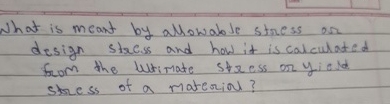 What is meant by allowable stress or
design stress and how it is calculated
from the Ultimate stress or yield
stress of a material?